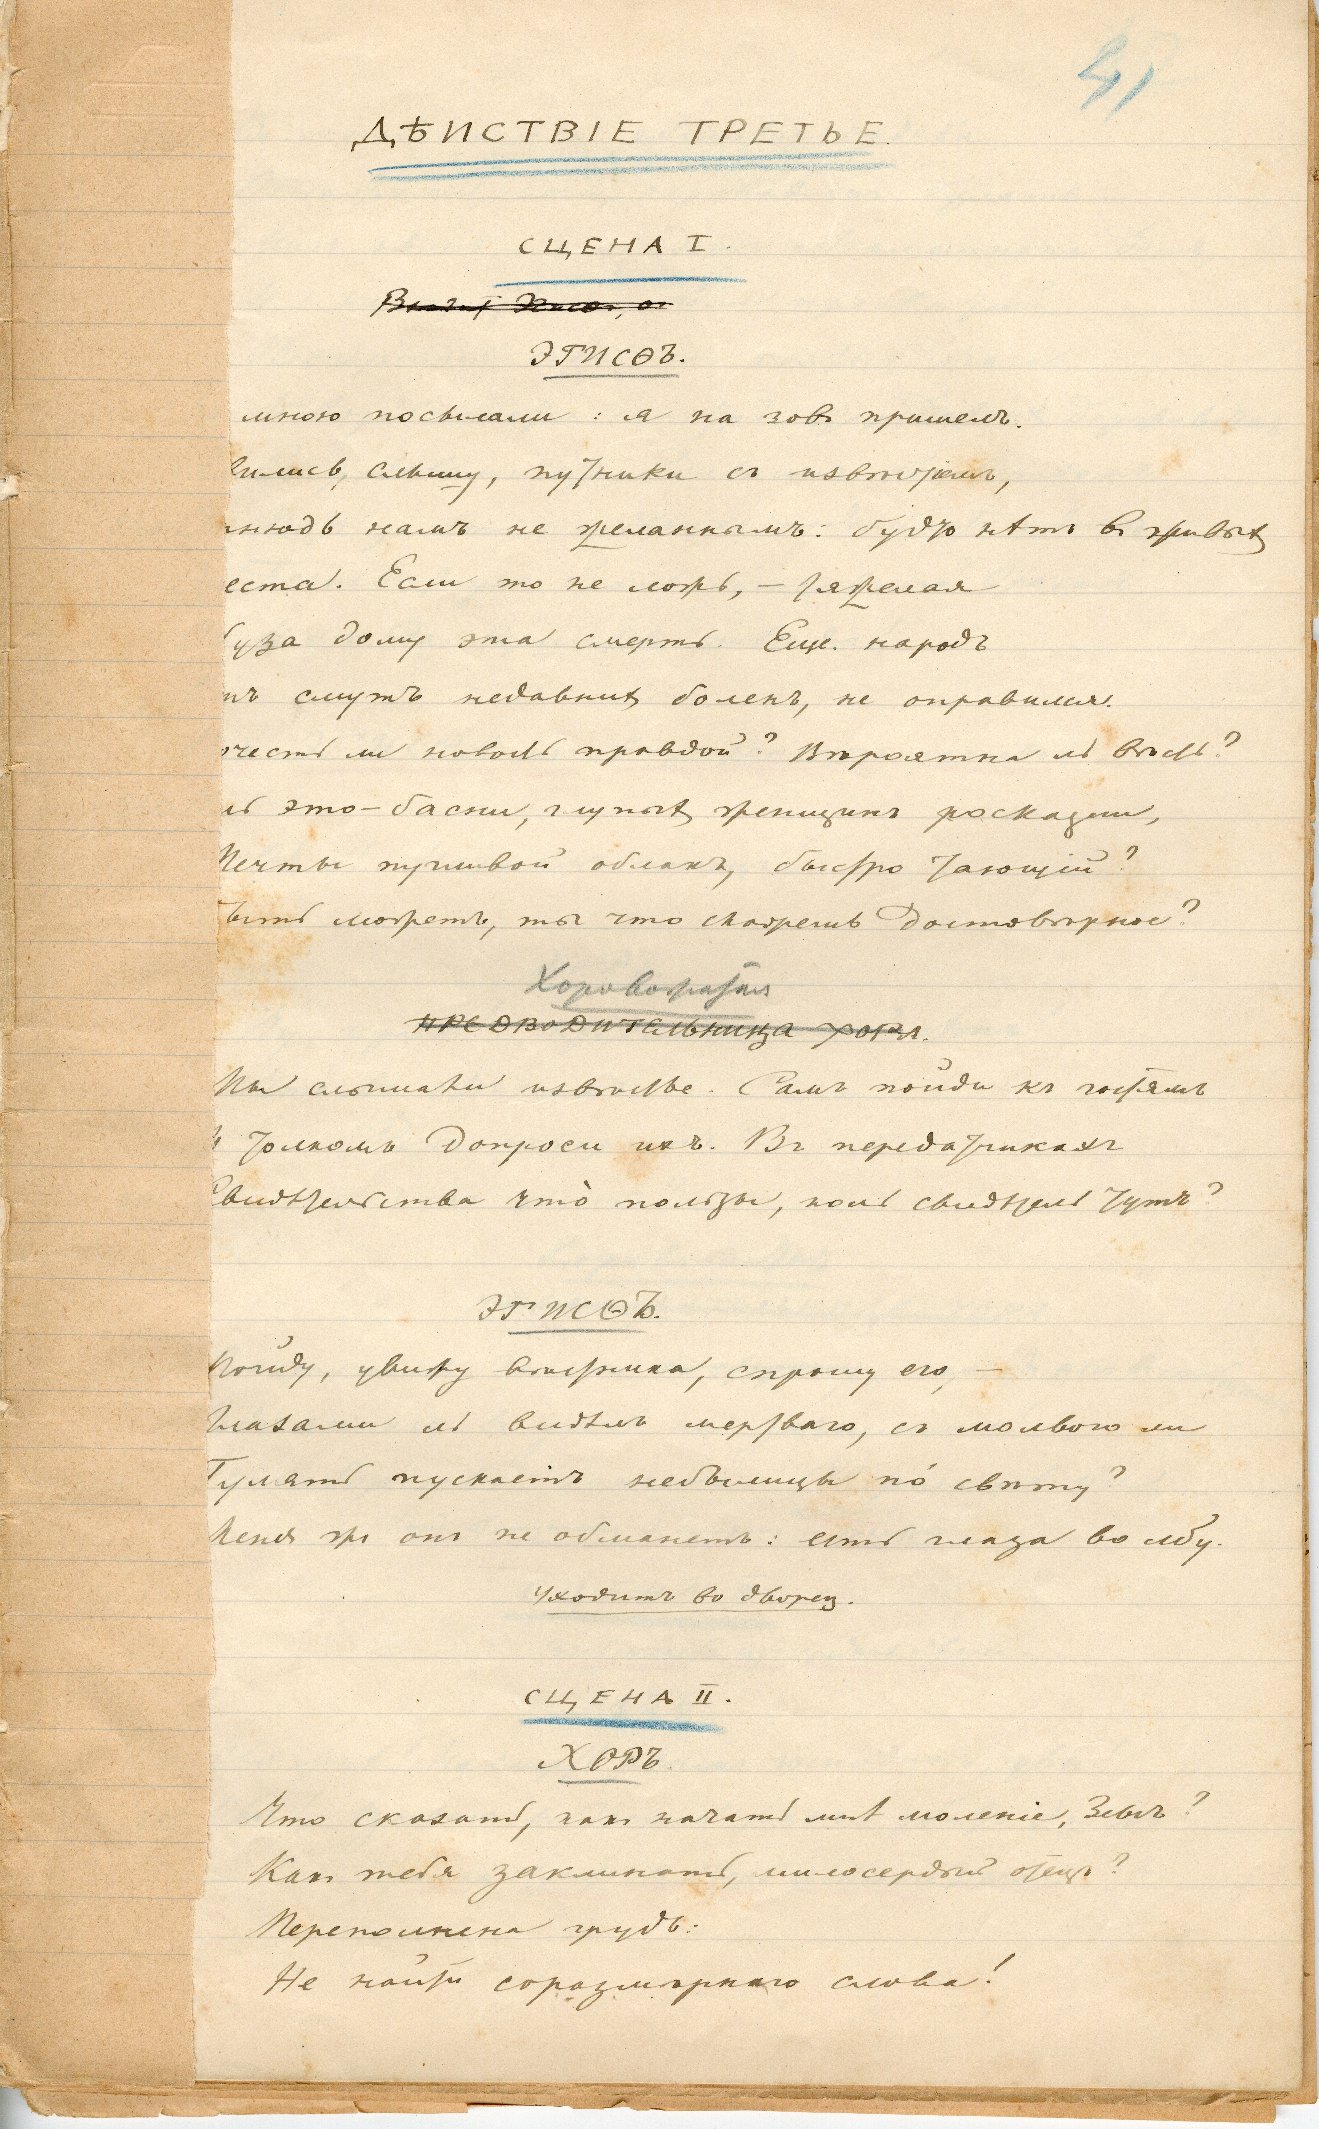 41
ДѢЙСТВІЕ ТРЕТЬЕ.
СЦЕНА I.
ЭГИСѲЪ.
мною посылали: я на зовъ пришелъ.
вились, слышу, путники съ извѣстіемъ,
нюдь намъ не желаннымъ: будто нѣтъ въ живыхъ
еста. Если то не ложь, – тяжелая
уза дому эта смерть. Еще народъ
тъ смутъ недавнихъ боленъ, не оправился.
очесть ли новость правдой? Вѣроятна ль вѣсть?
ль это – басни, глупыхъ женщинъ росказни,
Мечты пугливой облакъ, быстро тающій?
Быть можетъ, ты что скажешь достовѣрное?
Хоровожатая
ПРЕДВОДИТЕЛЬНИЦА ХОРА.
Мы слышали извѣстье. Самъ пойди къ гостямъ
И толкомъ допроси ихъ. Въ передатчикахъ
Свидѣтельства что̀ пользы, коль свидѣтель тутъ?
ЭГИСѲЪ.
Пойду, увижу вѣстника, спрошу его, –
Глазами ль видѣлъ мертваго, съ молвою ли
Гулять пускаетъ небылицы по́ свѣту?
Меня жъ онъ не обманетъ: есть глаза во лбу.
Уходитъ во дворец.
СЦЕНА II.
ХОРЪ.
Что сказать, какъ начать мнѣ моленіе, Зевсъ?
Какъ тебя заклинать, милосердый отецъ?
Переполнена грудь:
Не найти соразмѣрнаго слова!